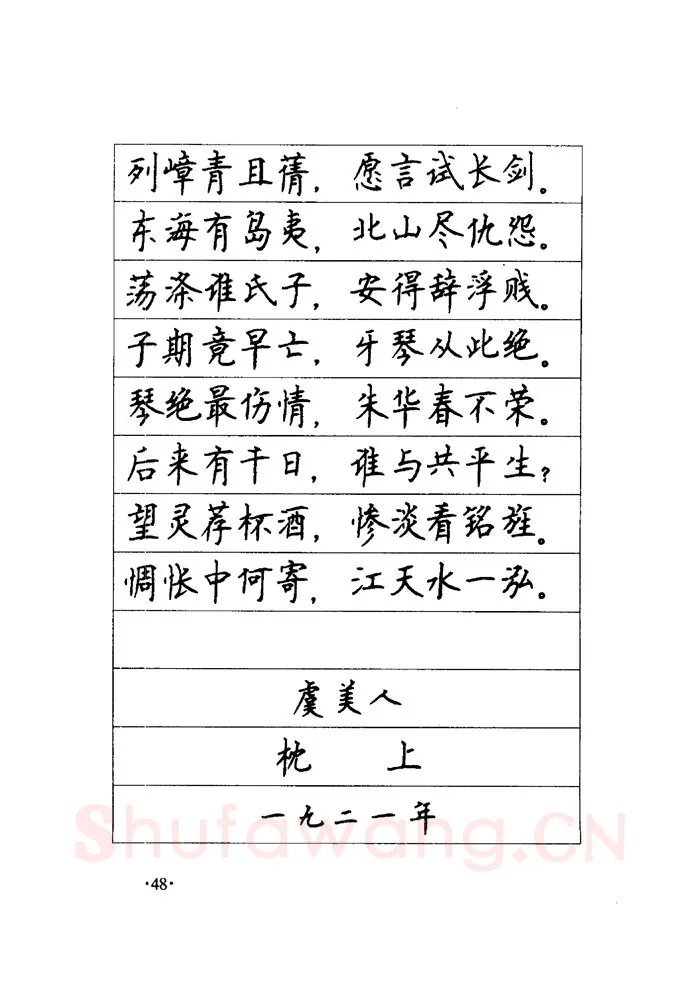 列嶂青且茜，愿言试长剑。
东海有岛夷，北山尽仇怨。
荡涤谁氏子，安得辞浮贱。
子期竟早亡，牙琴从此绝。
琴绝最伤情，朱华春不荣。
后来有千日，谁与共平生？
望灵荐杯酒，惨淡看铭旌。
惆怅中何寄，江天水一泓。
虞美人
枕 上
一九二一年
Shufawang.CN
·48·